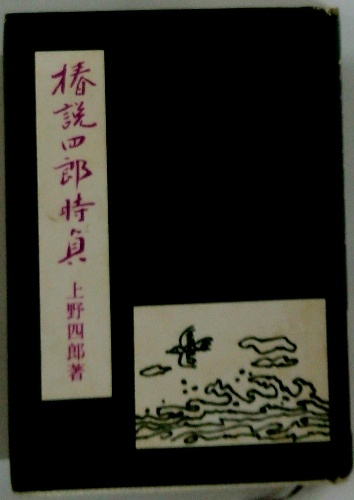 椿説四郎時貞
上野四郎著